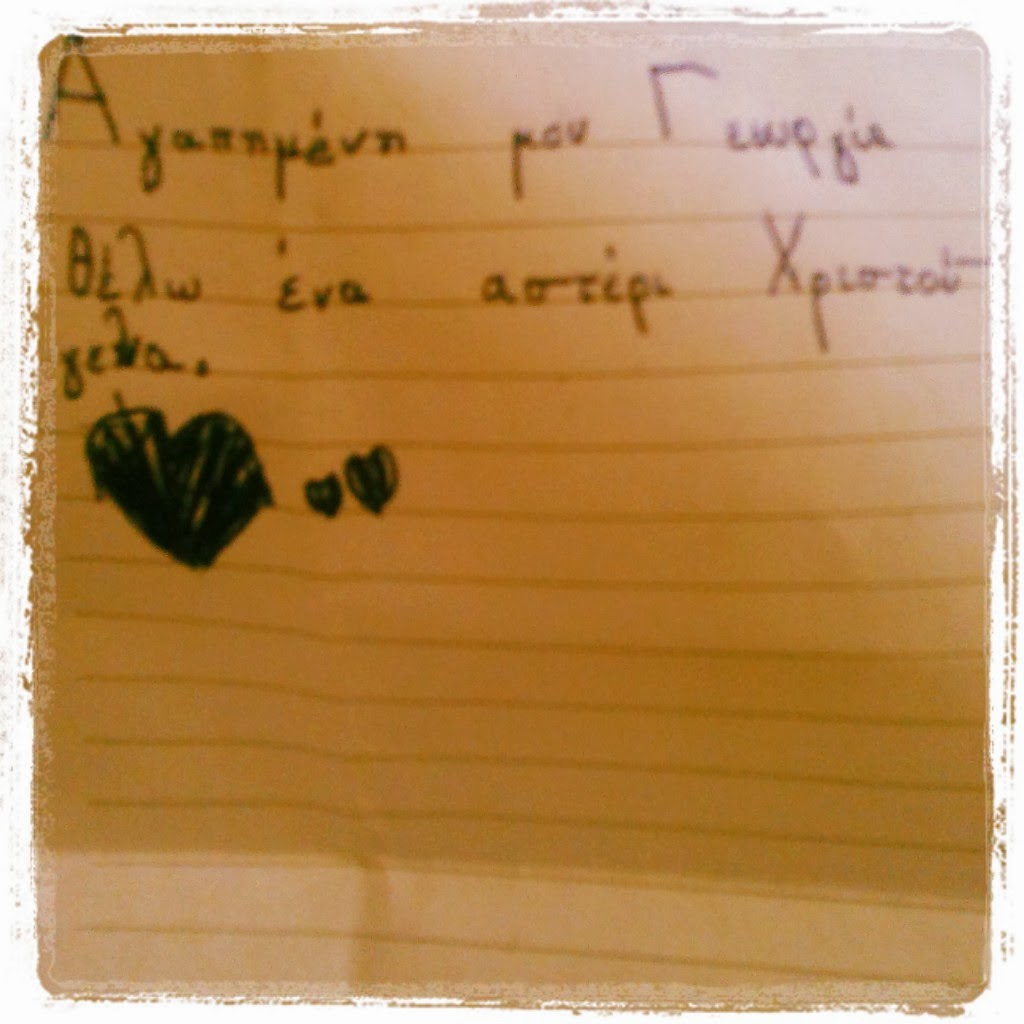 Αγαπημένη μου Γεωργία
Θέλω ένα αστέρι Χριστού-
γενα.